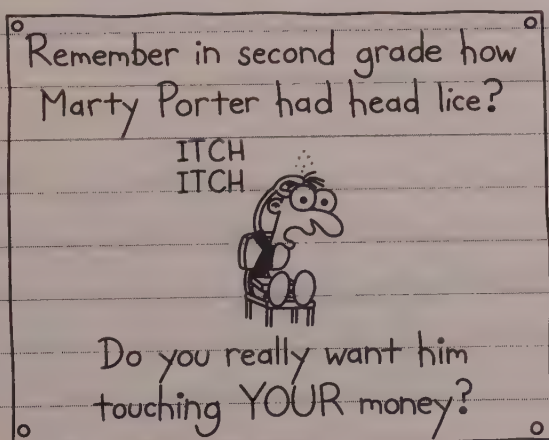 Remember in second grade how
Marty Porter had head lice?
ITCH
ITCH
Do you really want him
touching YOUR money?